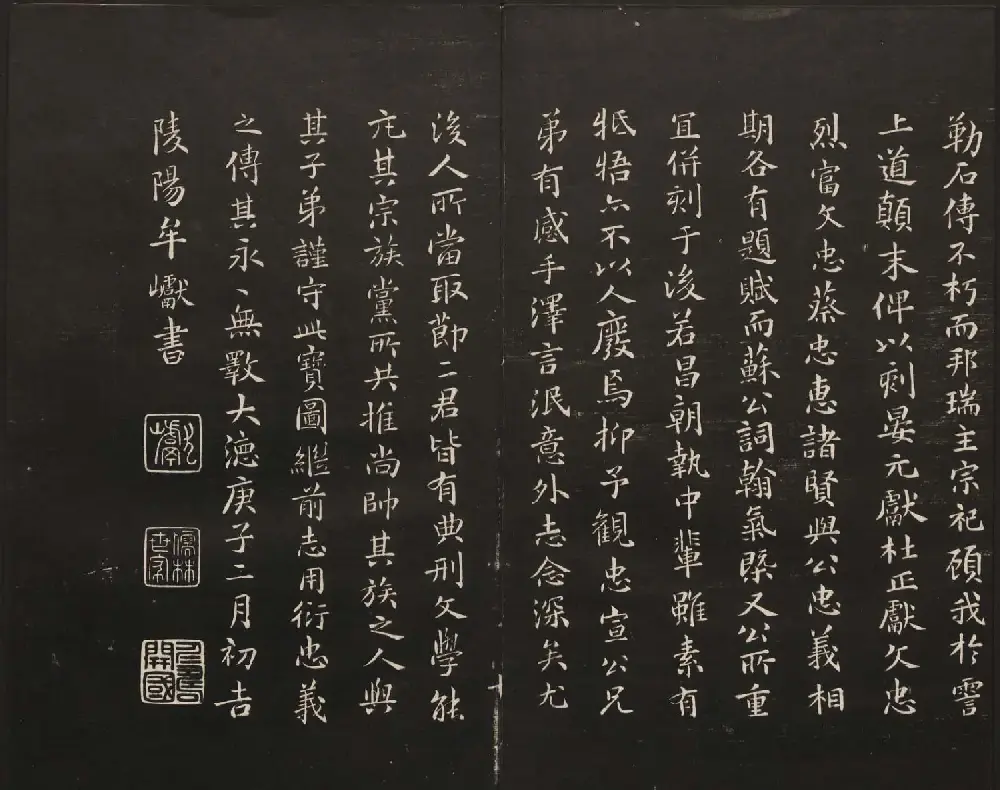 勒石傳不朽而邦瑞主宗祀碩我於霅
上道顛末俾以刻晏元獻杜正獻欠忠
烈富文忠蔡忠惠諸賢與公忠義相
期各有題賦而蘇公詞翰氣槩又公所重
宜併刻于後若昌朝執中輩雖素有
牴牾亦不以人廢焉抑予觀忠宣公兄
弟有感手澤言泯意外志念深矣尤
後人所當取節二君皆有典刑文學能
亢其宗族黨所共推尚帥其族之人與
其子弟謹守此寶圖繼前志用衍忠義
之傳其永〻無斁大德庚子二月初吉
陵陽牟巘書
儒林世家
開國